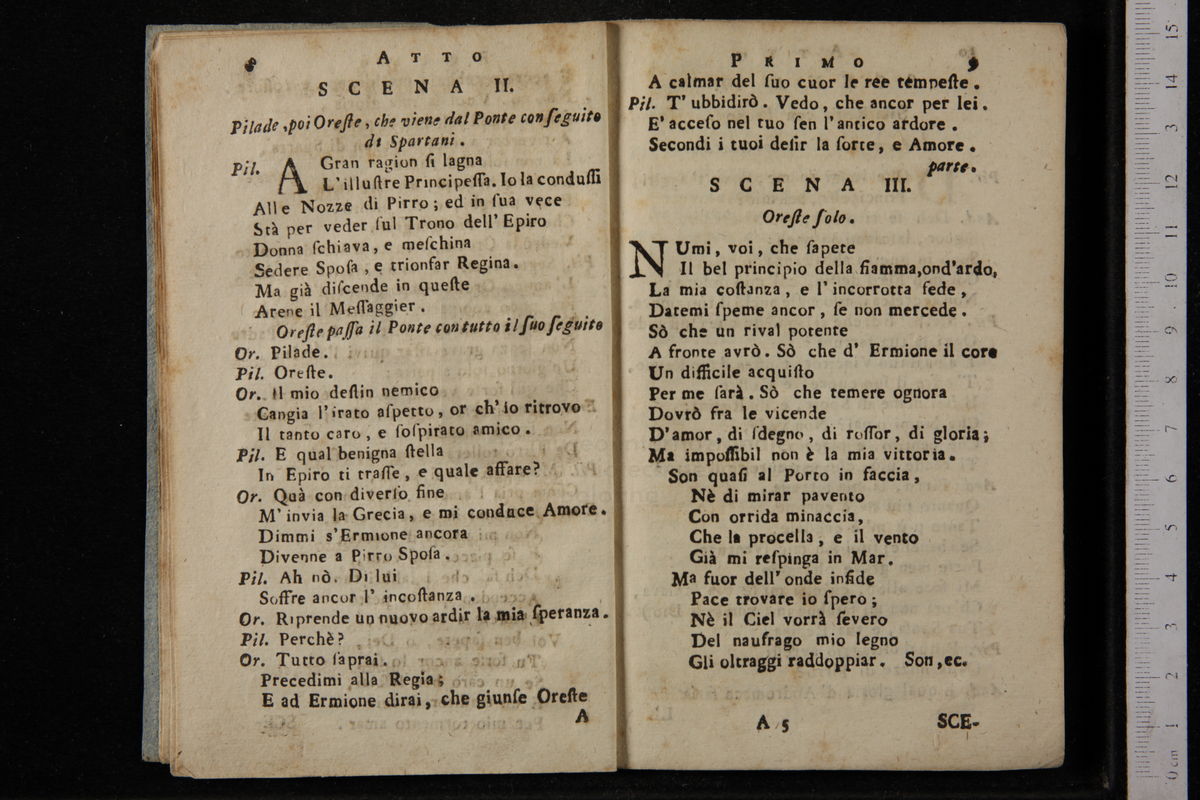 8 ATTO
SCENA II.
Pilade, poi Oreſte, che viene dal Ponte con ſeguito
di Spartani.
Pil. A Gran ragion ſi lagna
L'illuſtre Principeſſa. Io la conduſſi
Alle Nozze di Pirro; ed in ſua vece
Stà per veder ſul Trono dell' Epiro
Donna ſchiava, e meſchina
Sedere Spoſa, e trionfar Regina.
Ma già diſcende in queſte
Arene il Meſſaggier.
Oreſte paſſa il Ponte con tutto il ſuo ſeguito
Or. Pilade.
Pil. Oreſte.
Or. Il mio deſtin nemico
Cangia l'irato aſpetto, or ch' io ritrovo
Il tanto caro, e ſoſpirato amico.
Pil. E qual benigna ſtella
In Epiro ti traſſe, e quale affare?
Or. Quà con diverſo fine
M' invia la Grecia, e mi conduce Amore.
Dimmi s'Ermione ancora
Divenne a Pirro Spoſa.
Pil. Ah nò. Di lui
Soffre ancor l' incoſtanza.
Or. Riprende un nuovo ardir la mia ſperanza.
Pil. Perchè?
Or. Tutto ſaprai.
Precedimi alla Regia;
E ad Ermione dirai, che giunſe Oreſte
A
PRIMO 9
A calmar del ſuo cuor le ree tempeſte.
Pil. T' ubbidirò. Vedo, che ancor per lei.
E' acceſo nel tuo ſen l'antico ardore.
Secondi i tuoi deſir la ſorte, e Amore.
parte.
SCENA III.
Oreſte ſolo.
NUmi, voi, che ſapete
Il bel principio della fiamma, ond'ardo,
La mia coſtanza, e l' incorrotta fede,
Datemi ſpeme ancor, ſe non mercede.
Sò che un rival potente
A fronte avrò. Sò che d' Ermione il core
Un difficile acquiſto
Per me ſarà. Sò che temere ognora
Dovrò fra le vicende
D'amor, di ſdegno, di roſſor, di gloria;
Ma impoſſibil non è la mia vittoria.
Son quaſi al Porto in faccia,
Nè di mirar pavento
Con orrida minaccia,
Che la procella, e il vento
Già mi reſpinga in Mar.
Ma fuor dell' onde infide
Pace trovare io ſpero;
Nè il Ciel vorrà ſevero
Del naufrago mio legno
Gli oltraggi raddoppiar. Son, ec.
A 5 SCE-
15
14
13
12
11
10
9
8
7
6
5
4
3
2
1
0 cm